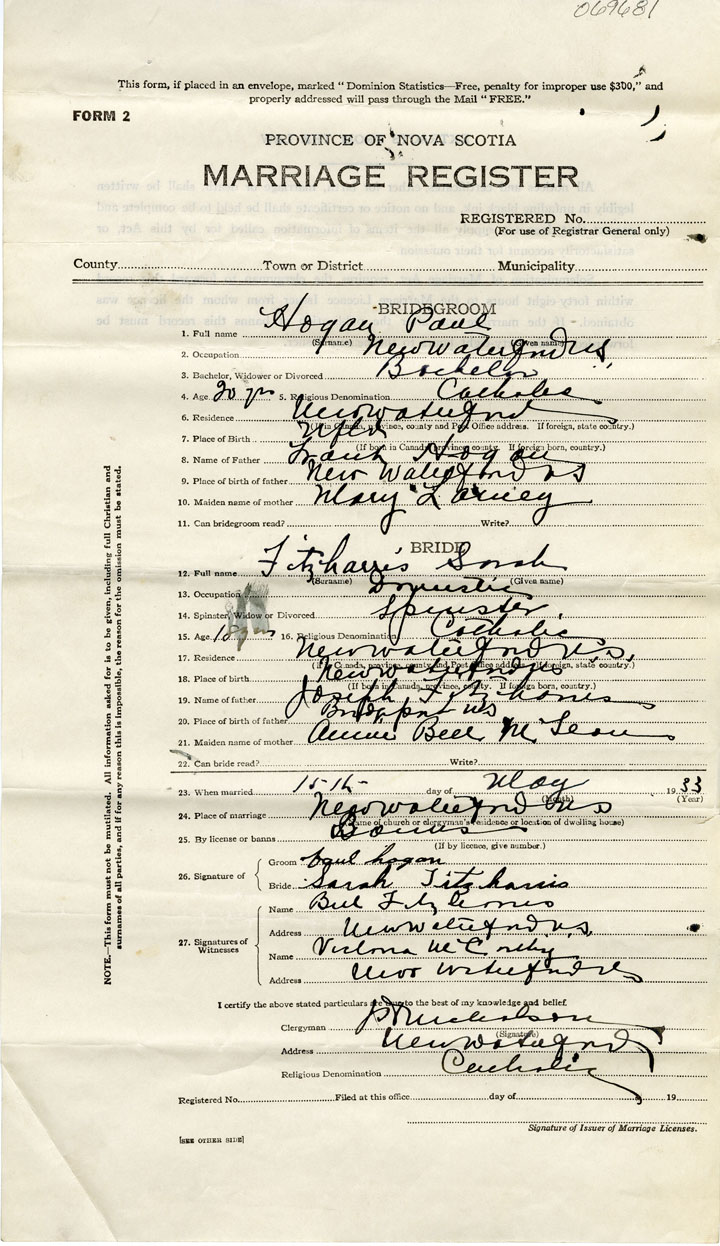 069681
This form, if placed in an envelope, marked " Dominion Statistics—Free, penalty for improper use $300," and
properly addressed will pass through the Mail " FREE."
FORM 2
PROVINCE OF NOVA SCOTIA
MARRIAGE REGISTER
REGISTERED No.
(For use of Registrar General only)
County Town or District Municipality
BRIDEGROOM
1. Full name Hogan Paul
(Surname) (Given name)
2. Occupation New Waterford N.S.
3. Bachelor, Widower or Divorced Bachelor
4. Age 20 yrs 5. Religious Denomination Catholic
6. Residence New Waterford
(If in Canada, province, county and Post Office address. If foreign, state country.)
7. Place of Birth Nfld
(If born in Canada, province, county. If foreign born, country.)
8. Name of Father Frank Hogan
9. Place of birth of father New Waterford N S
10. Maiden name of mother Mary
11. Can bridegroom read? Write?
BRIDE
12. Full name Fitzharris Sarah
(Surname) (Given name)
13. Occupation Domestic
14. Spinster, Widow or Divorced Spinster
15. Age 18 yrs 16. Religious Denomination Catholic
17. Residence New Waterford N.S.
(If in Canada, province, county and Post Office address. If foreign, state country.)
18. Place of birth New Waterford N S
(If born in Canada, province, county. If foreign born, country.)
19. Name of father Joseph Fitzharris
20. Place of birth of father Bridgeport N S
21. Maiden name of mother Annie Bell McLean
22. Can bride read? Write?
23. When married 15th day of May 19 33
(Month) (Year)
24. Place of marriage New Waterford N S
(Name of church or clergyman's residence or location of dwelling house)
25. By license or banns Banns
(If by licence, give number.)
26. Signature of Groom Paul hogan
Bride Sarah Fitzharris
27. Signatures of Witnesses
Name Fitzharris
Address New Waterford N.S.
Name
Address New Waterford N S
I certify the above stated particulars are true to the best of my knowledge and belief.
Clergyman Nicholson
(Signature)
Address New Waterford
Religious Denomination Catholic
Registered No. Filed at this office day of 19
Signature of Issuer of Marriage Licenses.
[SEE OTHER SIDE]
NOTE.—This form must not be mutilated. All information asked for is to be given, including full Christian and
surnames of all parties, and if for any reason this is impossible, the reason for the omission must be stated.